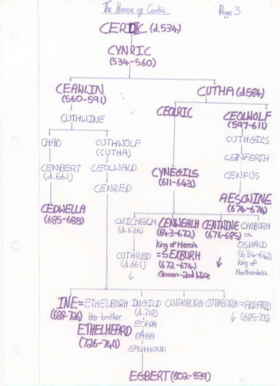 The House of Cerdic Page 3
CERDIC (d.534)
CYNRIC
(534-560)
CEAWLIN
(560-591)
CUTHA (d.584)
CUTHWINE
CEOLRIC
CEOLWULF
(597-611)
CHAD
CUTHWULF
(CUTHA)
CUTHGILS
CENBERT
(d.661)
CEOLWALD
CYNEGILS
(611-643)
CENFERTH
CENRED
CENFUS
CEDWELLA
(685-688)
AESCWING
(674-676)
CWICHELM
(d.636)
CENWEALH
(643-672)
King of Mercia
CENTWINE
(676-685)
CUTHRED
(d.661)
=SEXBURH
(672-674)
OSWALD
King of
Northumbria
INE=ETHELBURH
(688-726)
INGILD
(d.718)
CUTHBURH
ETHELHEARD
(726-740)
EOPPA
EAFA
EALHMUND
EGBERT (802-839)